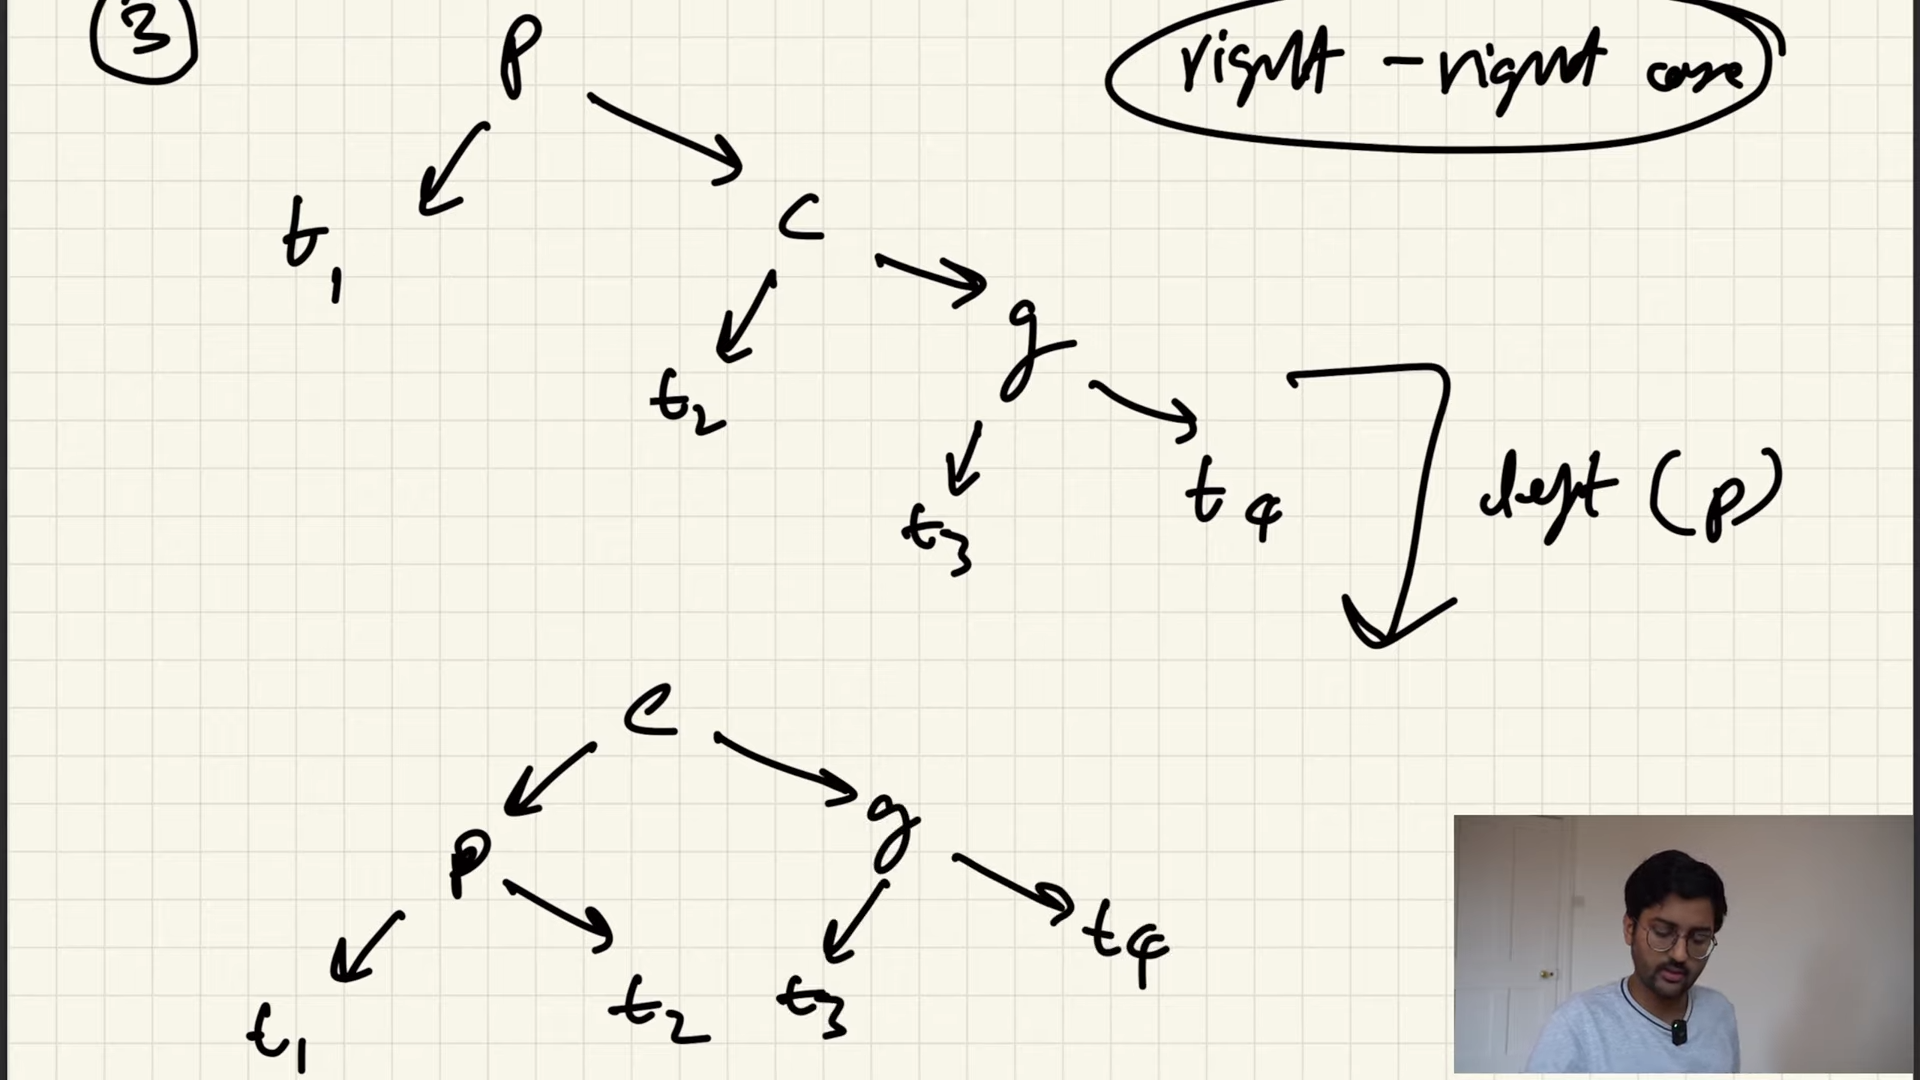 3
p
right-right case
t1
c
g
t2
t3
t4
left (p)
c
p
g
t1
t2
t3
t4